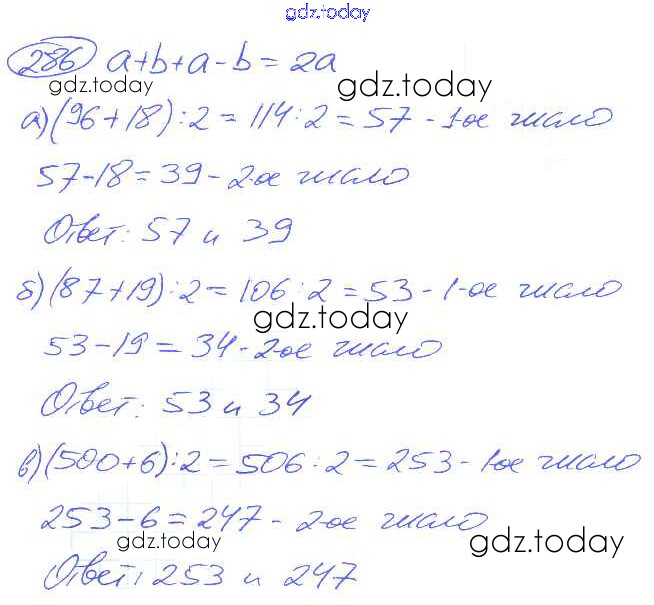 gdz.today
286 a+b+a-b=2a
gdz.today
gdz.today
а) (96+18):2=114:2=57 - 1-ое число
57-18=39 - 2-ое число
Ответ: 57 и 39
б) (87+19):2=106:2=53 - 1-ое число
gdz.today
53-19=34 - 2-ое число
Ответ: 53 и 34
в) (500+6):2=506:2=253 - 1-ое число
253-6=247 - 2-ое число
gdz.today
gdz.today
Ответ: 253 и 247